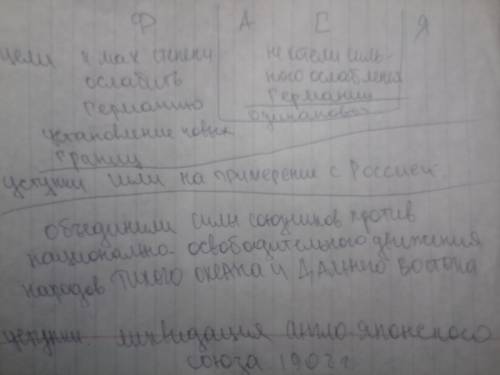 Ф А С Я
цели к мах степени не хотели силь-
ослабить ного ослабления
Германию Германии
установление новых одинаковы
границ
уступки шли на примерение с Россией.
объединили силы союзников против
национально-освободительного движения
народов Тихого океана и Дальнего востока
уступки ликвидация англо-японского
союза 1902 г